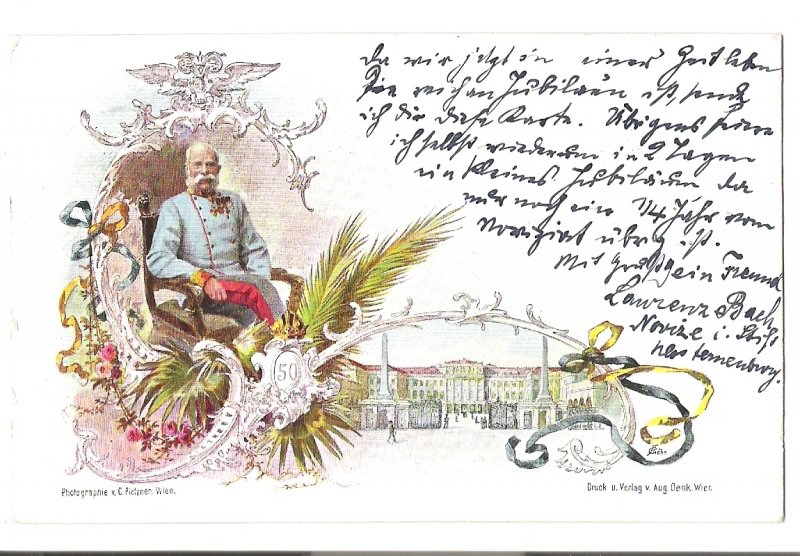 Da wir jetzt in einer Zeit leben
die reich an Jubiläen ist, sende
ich dir diese Karte. Übrigens feiere
ich selbst wiederum in 2 Tagen
ein kleines Jubiläum da
nur noch ein 1/4 Jahr vom
Noviziat übrig ist.
Mit Gruß dein Freund
Laurenz Bach
Novize i. Stift
Klosterneuburg.
50
Photographie v. C. Pietzner, Wien.
Druck u. Verlag v. Aug. Denk, Wien.